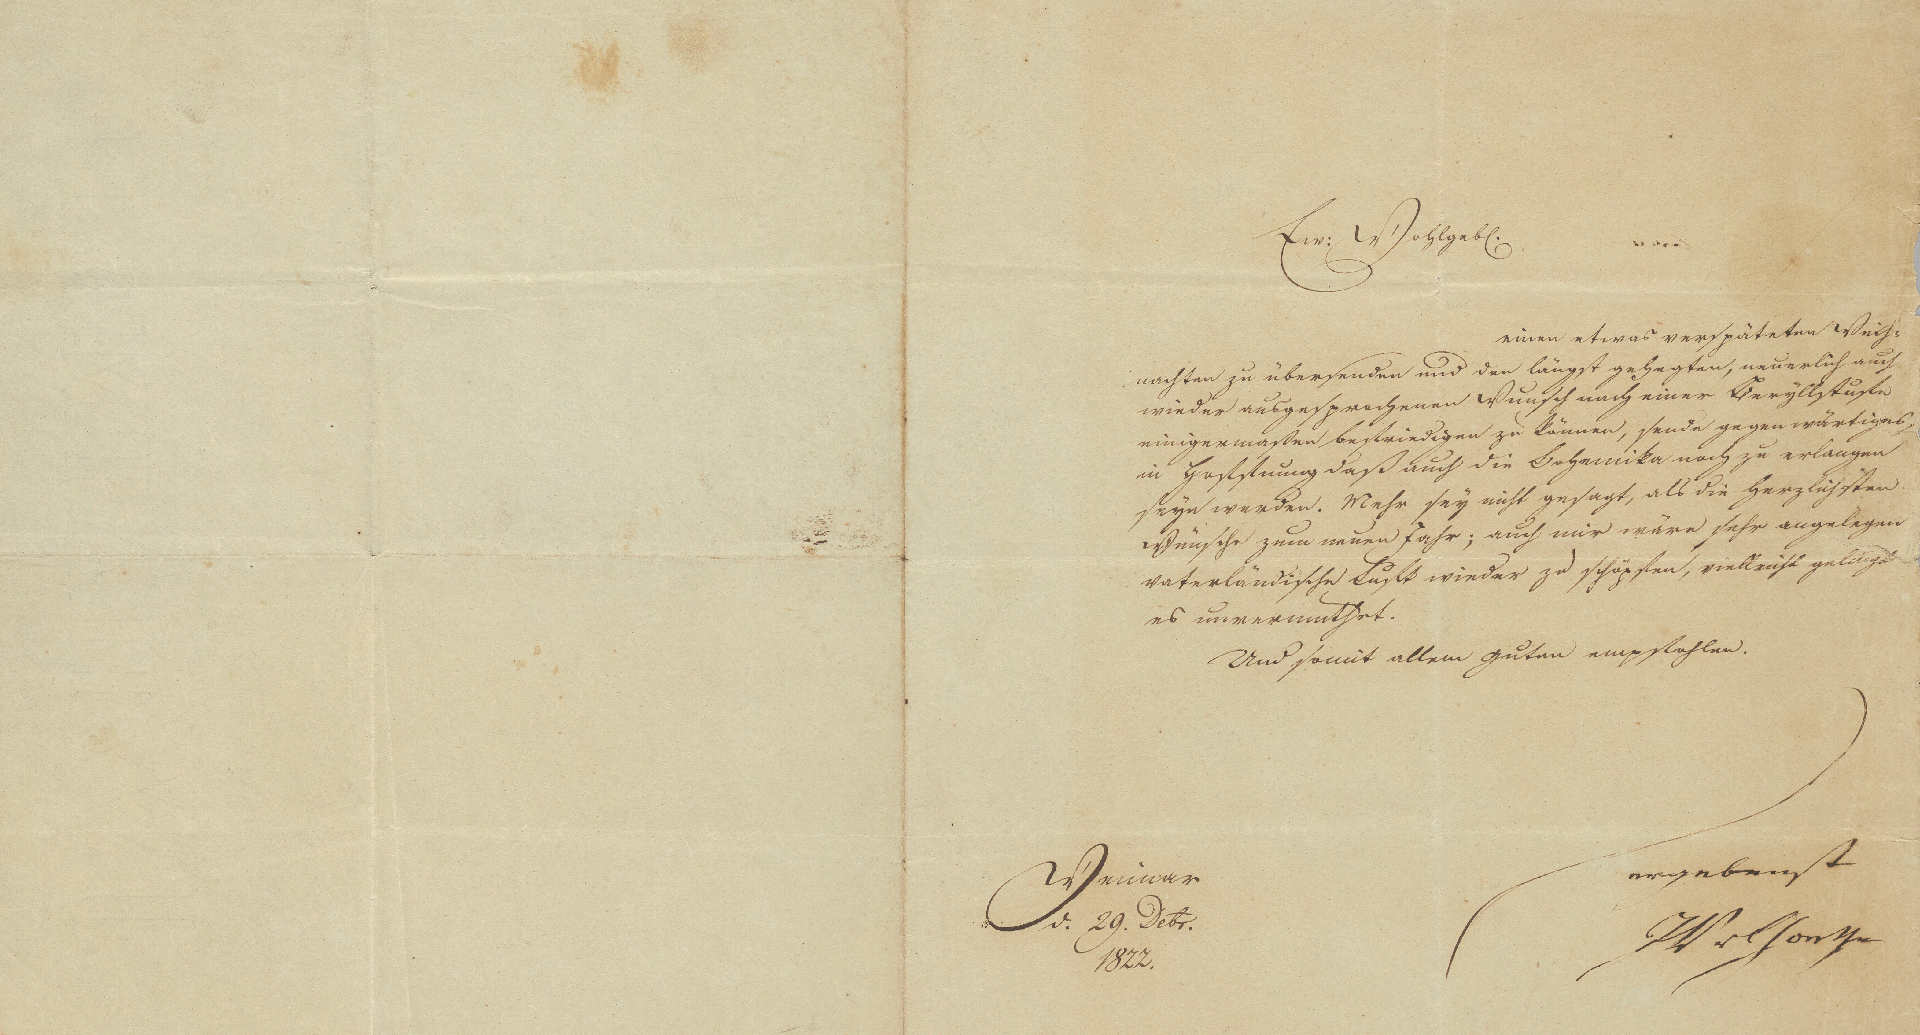 Ew: Wohlgebl.
einen etwas verspäteten Weih-
nachten zu übersenden und den längst gehegten, neuerlich auch
wieder ausgesprochenen Wunsch nach einer Beryllstufe
einigermaßen befriedigen zu können, sende gegenwärtiges,
in Hoffnung daß auch die Bohemika noch zu erlangen
seyn werden. Mehr sey nicht gesagt, als die herzlichsten
Wünsche zum neuen Jahr; auch mir wäre sehr angelegen
vaterländische Luft wieder zu schöpfen, vielleicht gelingt
es unvermuthet.
Und somit allem guten empfohlen.
ergebenst
JWvGoethe
Weimar
d. 29. Debr.
1822.